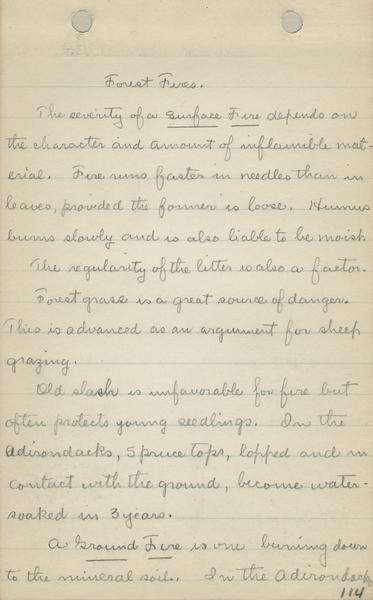 Forest Fires.
The severity of a Surface Fire depends on
the character and amount of inflamible mat-
erial. Fire runs faster in needles than in
leaves, provided the former is loose. Humus
burns slowly and is also liable to be moist.
The regularity of the litter is also a factor.
Forest grass is a great source of danger.
This is advanced as an argument for sheep
grazing.
Old slash is unfavorable for fire but
often protects young seedlings. In the
Adirondacks, Spruce tops, lopped and in
contact with the ground, become water-
soaked in 3 years.
A Ground Fire is one burning down
to the mineral soil. In the Adirondack
114